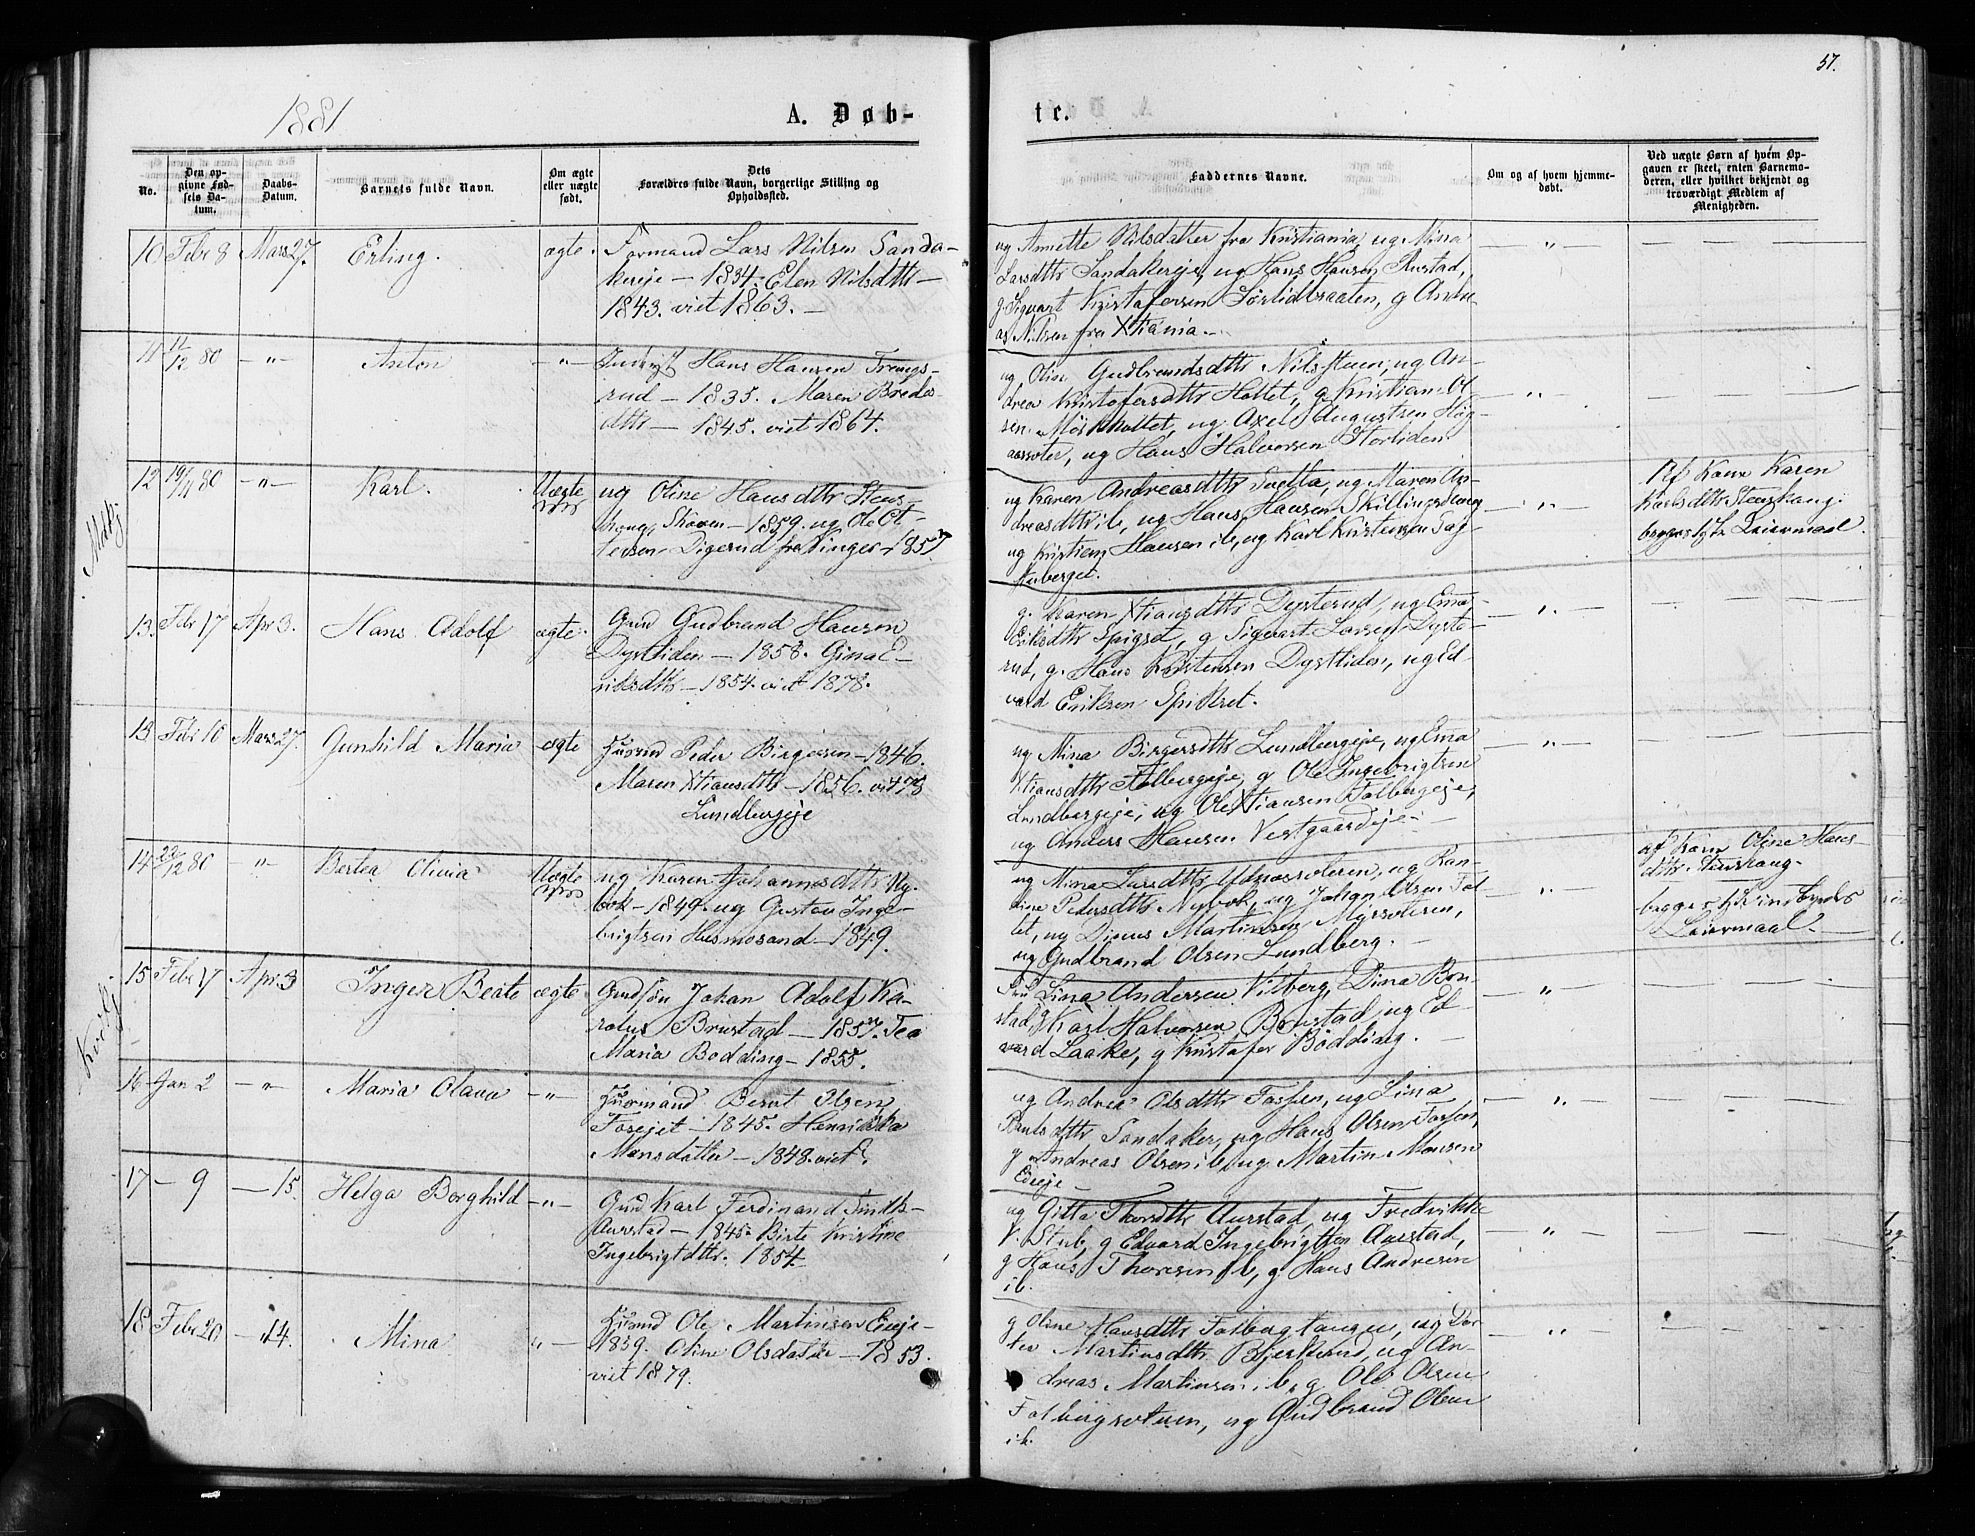 57.
1881
A. Døb-
te.
No.
Den op-
givne Fød-
sels Da-
tum.
Daabs-
Datum.
Barnets fulde Navn.
Om ægte
eller uægte
født.
Dets
Forældres fulde Navn, borgerlige Stilling og
Opholdssted.
Faddernes Navne.
Om og af hvem hjemme-
døbt.
Ved uægte Børn af hvem Op-
gaven er skeet, enten Barnemo-
deren, eller hvilket bekjendt og
troværdigt Medlem af
Menigheden.
10 Febr 8 Mars 27. Erling. ægte.
Formand Lars Nilsen Sanda-
kereje — 1834. Elen Nilsdttr —
1843. viet 1863. —
ug Annette Nilsdatter fra Kristiania, ug Mina
Larsdttr Sandakereje, ug Hans Hansen Rustad,
g. Siguart Kristofersen Sørlidbraaten, g Andre-
as Nilsen fra Xtiania. —
— " —
11 11/12 80 — " — Anton — " —
Hans Hansen Trengs-
rud — 1835. Maren Bredes-
dttr — 1845. viet 1864.
ug Oline Gudbrandsdttr Nilsstuen, ug An-
drea Kristofersdttr Holtet, g Kristian Ol-
sen Holtet, ug Axel Augustsen Høg-
aassæter, ug Hans Halvorsen Storliden
— " —
Mathj
12 19/11 80 — " — Karl. Uægte
ug Oline Hansdttr Stens-
haug, Skoven — 1859. ug Ole Ot-
tersen Digerud fra Vinger 1857
ug Karen Andreasdttr Tvetta, ug Maren An-
dreasdttr ib, ug Hans Hansen Skillingsdberg
ug Kristian Hansen ib, ug Karl Kristensen Sag-
berget.
— " —
Af Kone Karen
Karlsdttr Stenshaug.
begges 1ste Leiermaal.
13. Febr 17 Apr 3. Hans Adolf ægte.
Gaard Gudbrand Hansen
Dystliden — 1858. Gina E-
riksdttr — 1854. viet 1878.
g. Karen Xtiansdttr Dysterud, ug Ema
Eriksdttr Spigset, g Siguart Larsen Dyste-
rud, g. Hans Kristensen Dystliden, ug Ed-
vard Eriksen Spikset.
— " —
13 Febr 10 Mars 27. Gunhild Maria ægte
Husmd Peder Birgersen — 1846.
Maren Xtiansdttr — 1856. viet 78
Lundbergeje
ug Mina Birgersdttr Lundbergeje, ug Ema
Xtiansdttr Falbergeje, g Ole Ingebrigtsen
Lundbergeje, ug Ole Xtiansen Falbergeje,
ug Anders Hansen Vestgaardeje —
— " —
14 22/12 80 — " — Bertea Olivia Uægte
ug Karen Johannesdttr Ny-
bok — 1849. ug Gustav Inge-
brigtsen Husmosand — 1849.
ug Mina Larsdttr Udnæssæteren, ug Ran-
dine Pedersdttr Nybok, ug Johan Olsen Fal-
let, ug Dinus Martinsen Myrsæteren,
ug Gudbrand Olsen Lundberg. —
— " —
af Kone Oline Hans-
dttr Stenshaug.
begges 1ste
Leiermaal.
Kvelj
15 Febr 17 Apr 3 Inger Beate ægte
Gmdsøn Johan Adolf Ka-
rolus Brustad — 1857. Tea
Maria Bodding — 1855.
Frk Lina Andersen Vilberg, Dina Bru-
stad, g Karl Halvorsen Brustad, ug Ed-
vard Laake, g Kristofer Bodding. —
— " —
16 Jan 2 — " — Maria Olava — " —
Husmand Bernt Olsen
Fosejet — 1845. Henrikka
Monsdatter — 1848. viet
ug Andrea Olsdttr Fossen, ug Lina
Paulsdttr Sandaker, ug Hans Olsen Fossen,
g Andreas Olsen ib, ug Martin Monsen
Eieeje —
— " —
17 — 9 — 15. Helga Borghild — " —
Gmd Karl Ferdinand Smith
Aurstad — 1845. Birte Kristine
Ingebrigtdttr. 1854.
ug Gitta Thorsdttr Aurstad ug Fredrikke
V. Stub, g Edvard Ingebrigtsen Aurstad,
g Hans Thoresen ib, g. Hans Andresen
ib.
— " —
18 Febr 20 — 14. Mina " —
Husmd Ole Martinsen Eieeje —
1859. Oline Olsdatter — 1853.
viet 1879.
g Oline Hansdttr Falbergtangen, ug Dor-
tea Martinsdttr Bjerklund, ug An-
dreas Martinsen ib, g Ole Olsen
Falbergsæteren, ug Gudbrand Olsen
ib.
— " —